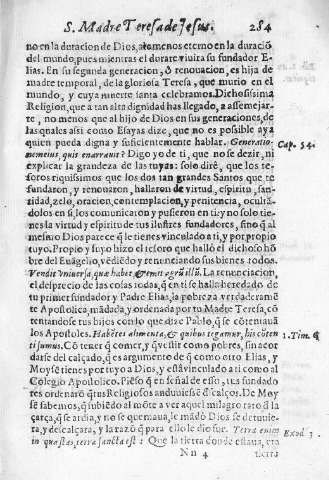 S. Madre Teresa de Jesus. 284
no en la duracion de Dios, alomenos eterno en la duraciõ
del mundo, pues mientras el durare viuira su fundador E-
lias. En su segunda generacion, ò renouacion, es hija de
madre temporal, de la gloriosa Teresa, que murio en el
mundo, y cuya muerte santa celebramos. Dichosissima
Religion, que a tan alta dignidad has llegado, a assemejar-
te, no menos que al hijo de Dios en sus generaciones, de
las quales assi como Esayas dize, que no es possible aya
quien pueda digna y suficientemente hablar. Generatio-
nem eius, quis enarrauit? Digo yo de ti, que no se dezir, ni
explicar la grandeza de las tuyas: solo dirè, que los te-
soros riquissimos que los dos tan grandes Santos que te
fundaron, y renouaron, hallaron de virtud, espiritu, san-
tidad, zelo, oracion, contemplacion, y penitencia, ocultã-
dolos en si, los comunicaron y pusieron en ti: y no solo tie-
nes la virtud y espiritu de tus ilustres fundadores, sino q̃ al
mesmo Dios parece q̃ le tienes vinculado a ti, y por propio
tuyo. Propio y tuyo hizo el tesoro que hallò el dichoso hõ-
bre del Euãgelio, vẽdiẽdo y renunciando sus bienes todos.
Vendit vniuersa quæ habet, & emit agrũ illũ. La renunciacion,
el desprecio de las cosas todas, q̃ en ti se halla heredado de
tu primer fundador y Padre Elias, la pobreza verdaderamẽ
te Apostolica, mãdada, y ordenada por tu Madre Teresa, cõ
tentandose tus hijos con lo que dize Pablo, q̃ se cõtentauã
los Apostoles. Habẽtes alimenta, & quibus tegamur, his cõten
ti sumus. Cõ tener q̃ comer, y q̃ vestir como pobres, sin acor
darse del calçado, q̃ es argumento de q̃ como otro Elias, y
Moyse tienes por tuyo a Dios, y està vinculado a ti como al
Colegio Apostolico. Piẽso q̃ en señal de esso, tus fundado
res ordenarõ q̃ tus Religiosos anduuiessẽ descalços. De Moy
se sabemos, q̃ subiẽdo al mõte a ver aquel milagro raro d̃ la
çarça, q̃ se ardia, y no se quemaua, le mãdò Dios se detuuie-
ra, y descalçara, y la razõ q̃ para ello le dio fue. Terra enim
in qua stas, terra sancta est: Que la tierra donde estaua, era
Nn 4 tierra
Cap. 54.
1. Tim. 6
Exod 3.